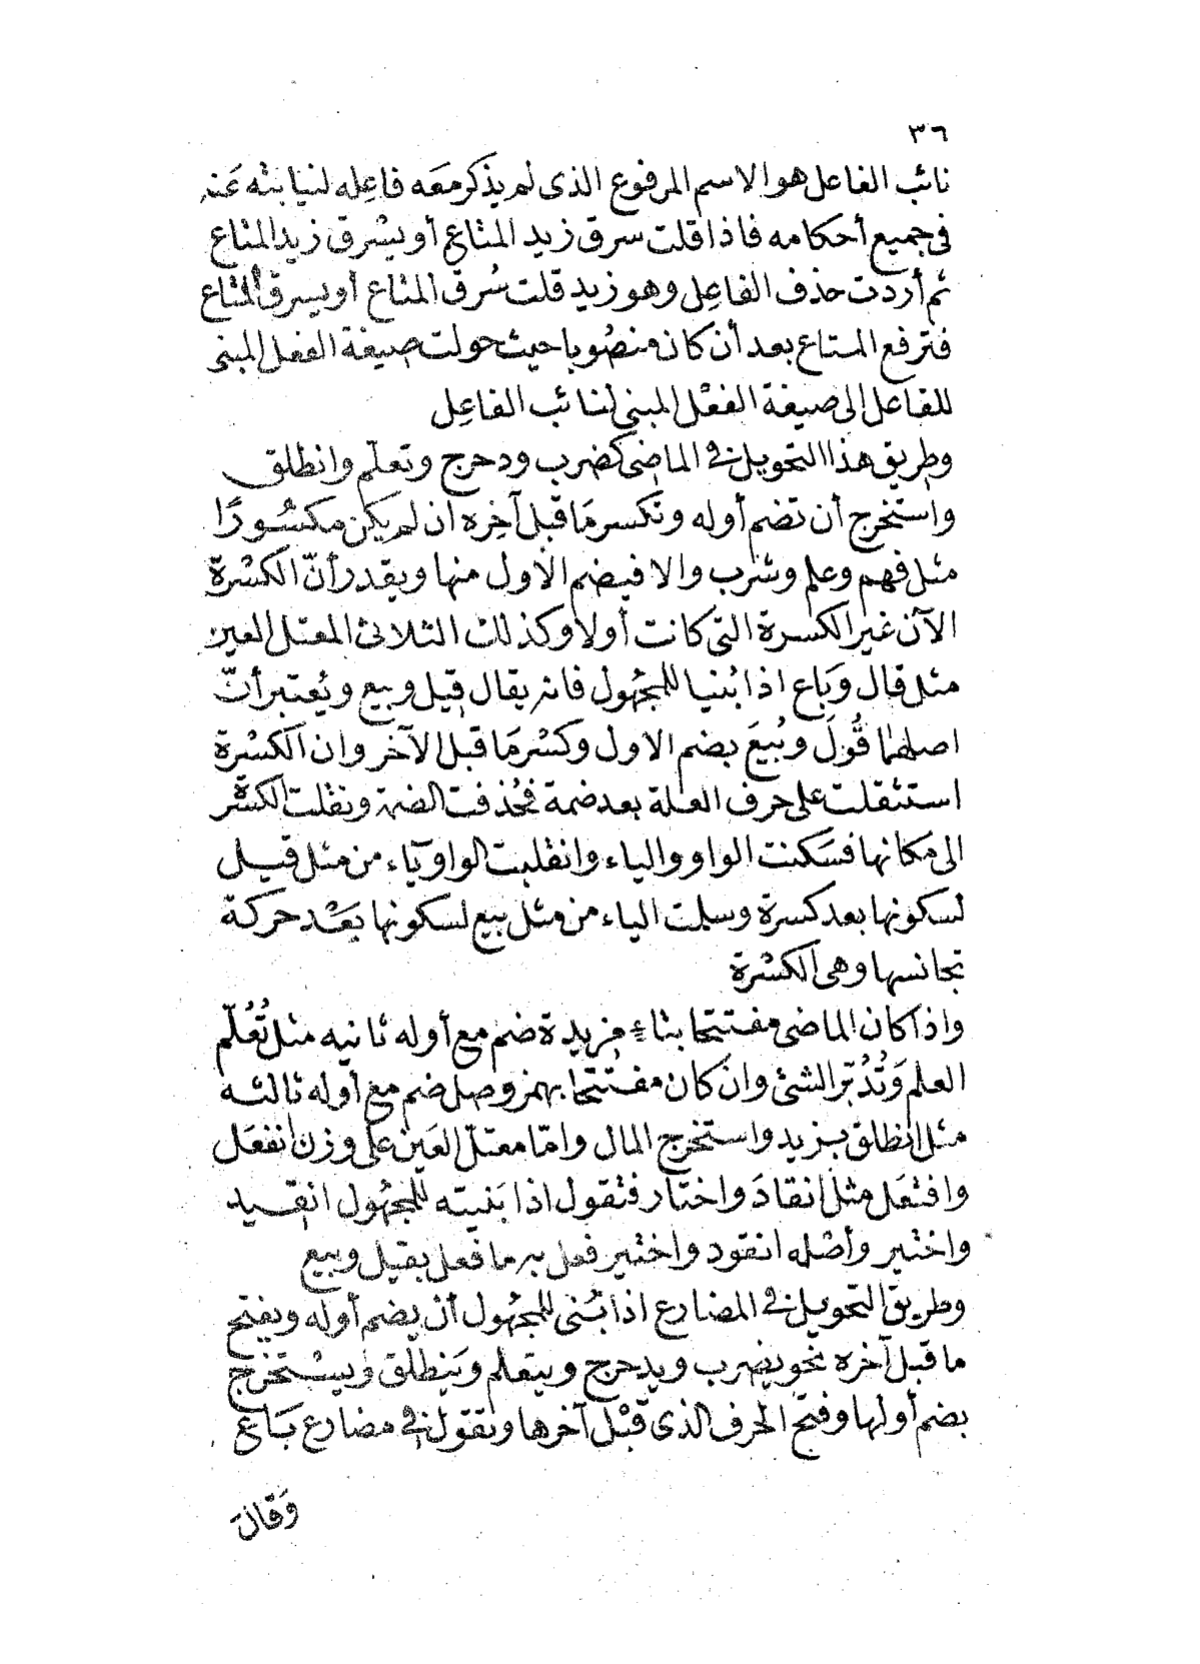 ٣٦
نائب الفاعل هو الاسم المرفوع الذى لم يذكر معَه فاعِله لنيابته عَنه
فى جميع أحكامه فاذا قلت سرق زيد المتاع أو يسْرق زيد المتاع
ثم أردت حذف الفاعِل وهو زيد قلت سُرق المتاع أو يسرق المتاع
فترفع المتاع بعد أن كان منصُوبا حيث حولت صيغة الفعل المبنى
للفاعل إلى صيغة الفعْل المبنى لنائب الفاعِل
وطريق هذا التحويل فى الماضى كضرب ودحرج وتعلّم وانطلق
واستخرج أن تضم أوله وتكسر مَا قبل آخِره ان لم يكن مكسُورًا
مثل فهم وعلم وشرب والا فيضم الأول منها ويقدر أنّ الكسْرة
الآن غير الكسرة التى كانت أولا وكذلك الثلاثى المعتل العين
مثل قال وبَاع اذا بُنيا للمجهُول فانه يقال قيل وبيع ويُعتبر أنّ
اصلهما قُولَ وبُيعَ بضم الاول وكسْر مَا قبل الآخر وان الكسْرة
استثقلت على حرف العلة بعد ضمة فحُذفت الضمة ونقلت الكسْرة
الى مَكانها فسَكنت الواو والياء وانقلبت الواو يَاء من مثل قيل
لسكونها بعد كسرة وسلمت الياء من مثل بيع لسكونها بَعْد حركة
تجانسها وهى الكسْرة
واذا كان الماضى مفتتحا بتاءٍ مزيدة ضم مع أوله ثانيه مثل تُعُلّم
العلم وَتُدُبّر الشئ وان كان مفتتحا بهمز وصل ضم مع أوله ثالثه
مثل انطلق بزيد واستخرج المال وامّا معتلّ العَين على وزن انفعَل
وافتعَل مثل انقادَ واختار فتقول اذا بَنيته للمجهُول انقيد
واختير وأصْله انقود واختير فعل به ما فعل بقيل وبيع
وطريق التحويل فى المضارع اذا بُنى للمجهُول أن يضم أوله ويفتح
ما قبل آخره نحو يضرب ويدحرج ويتعلم وَينطلق وَيسْتخرج
بضم أولها وفتح الحرف الذى قبْل آخرها وتقول فى مضارع بَاعَ
وَقالَ